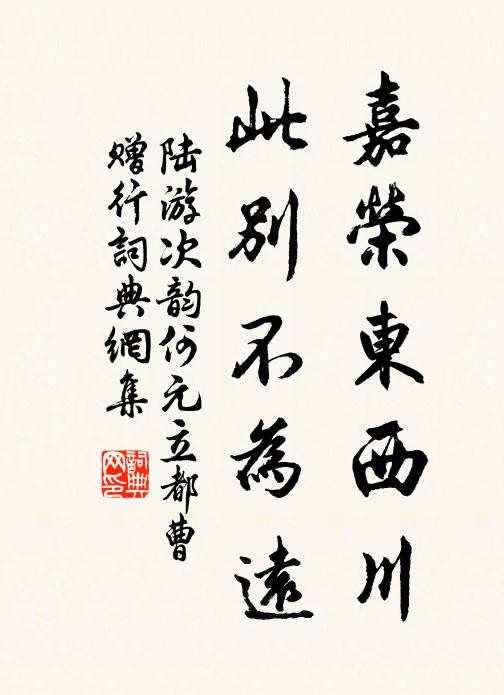 嘉榮東西川
此別不為遠
陆游次韵何元立都曹
赠行詞典網集
詞典网印